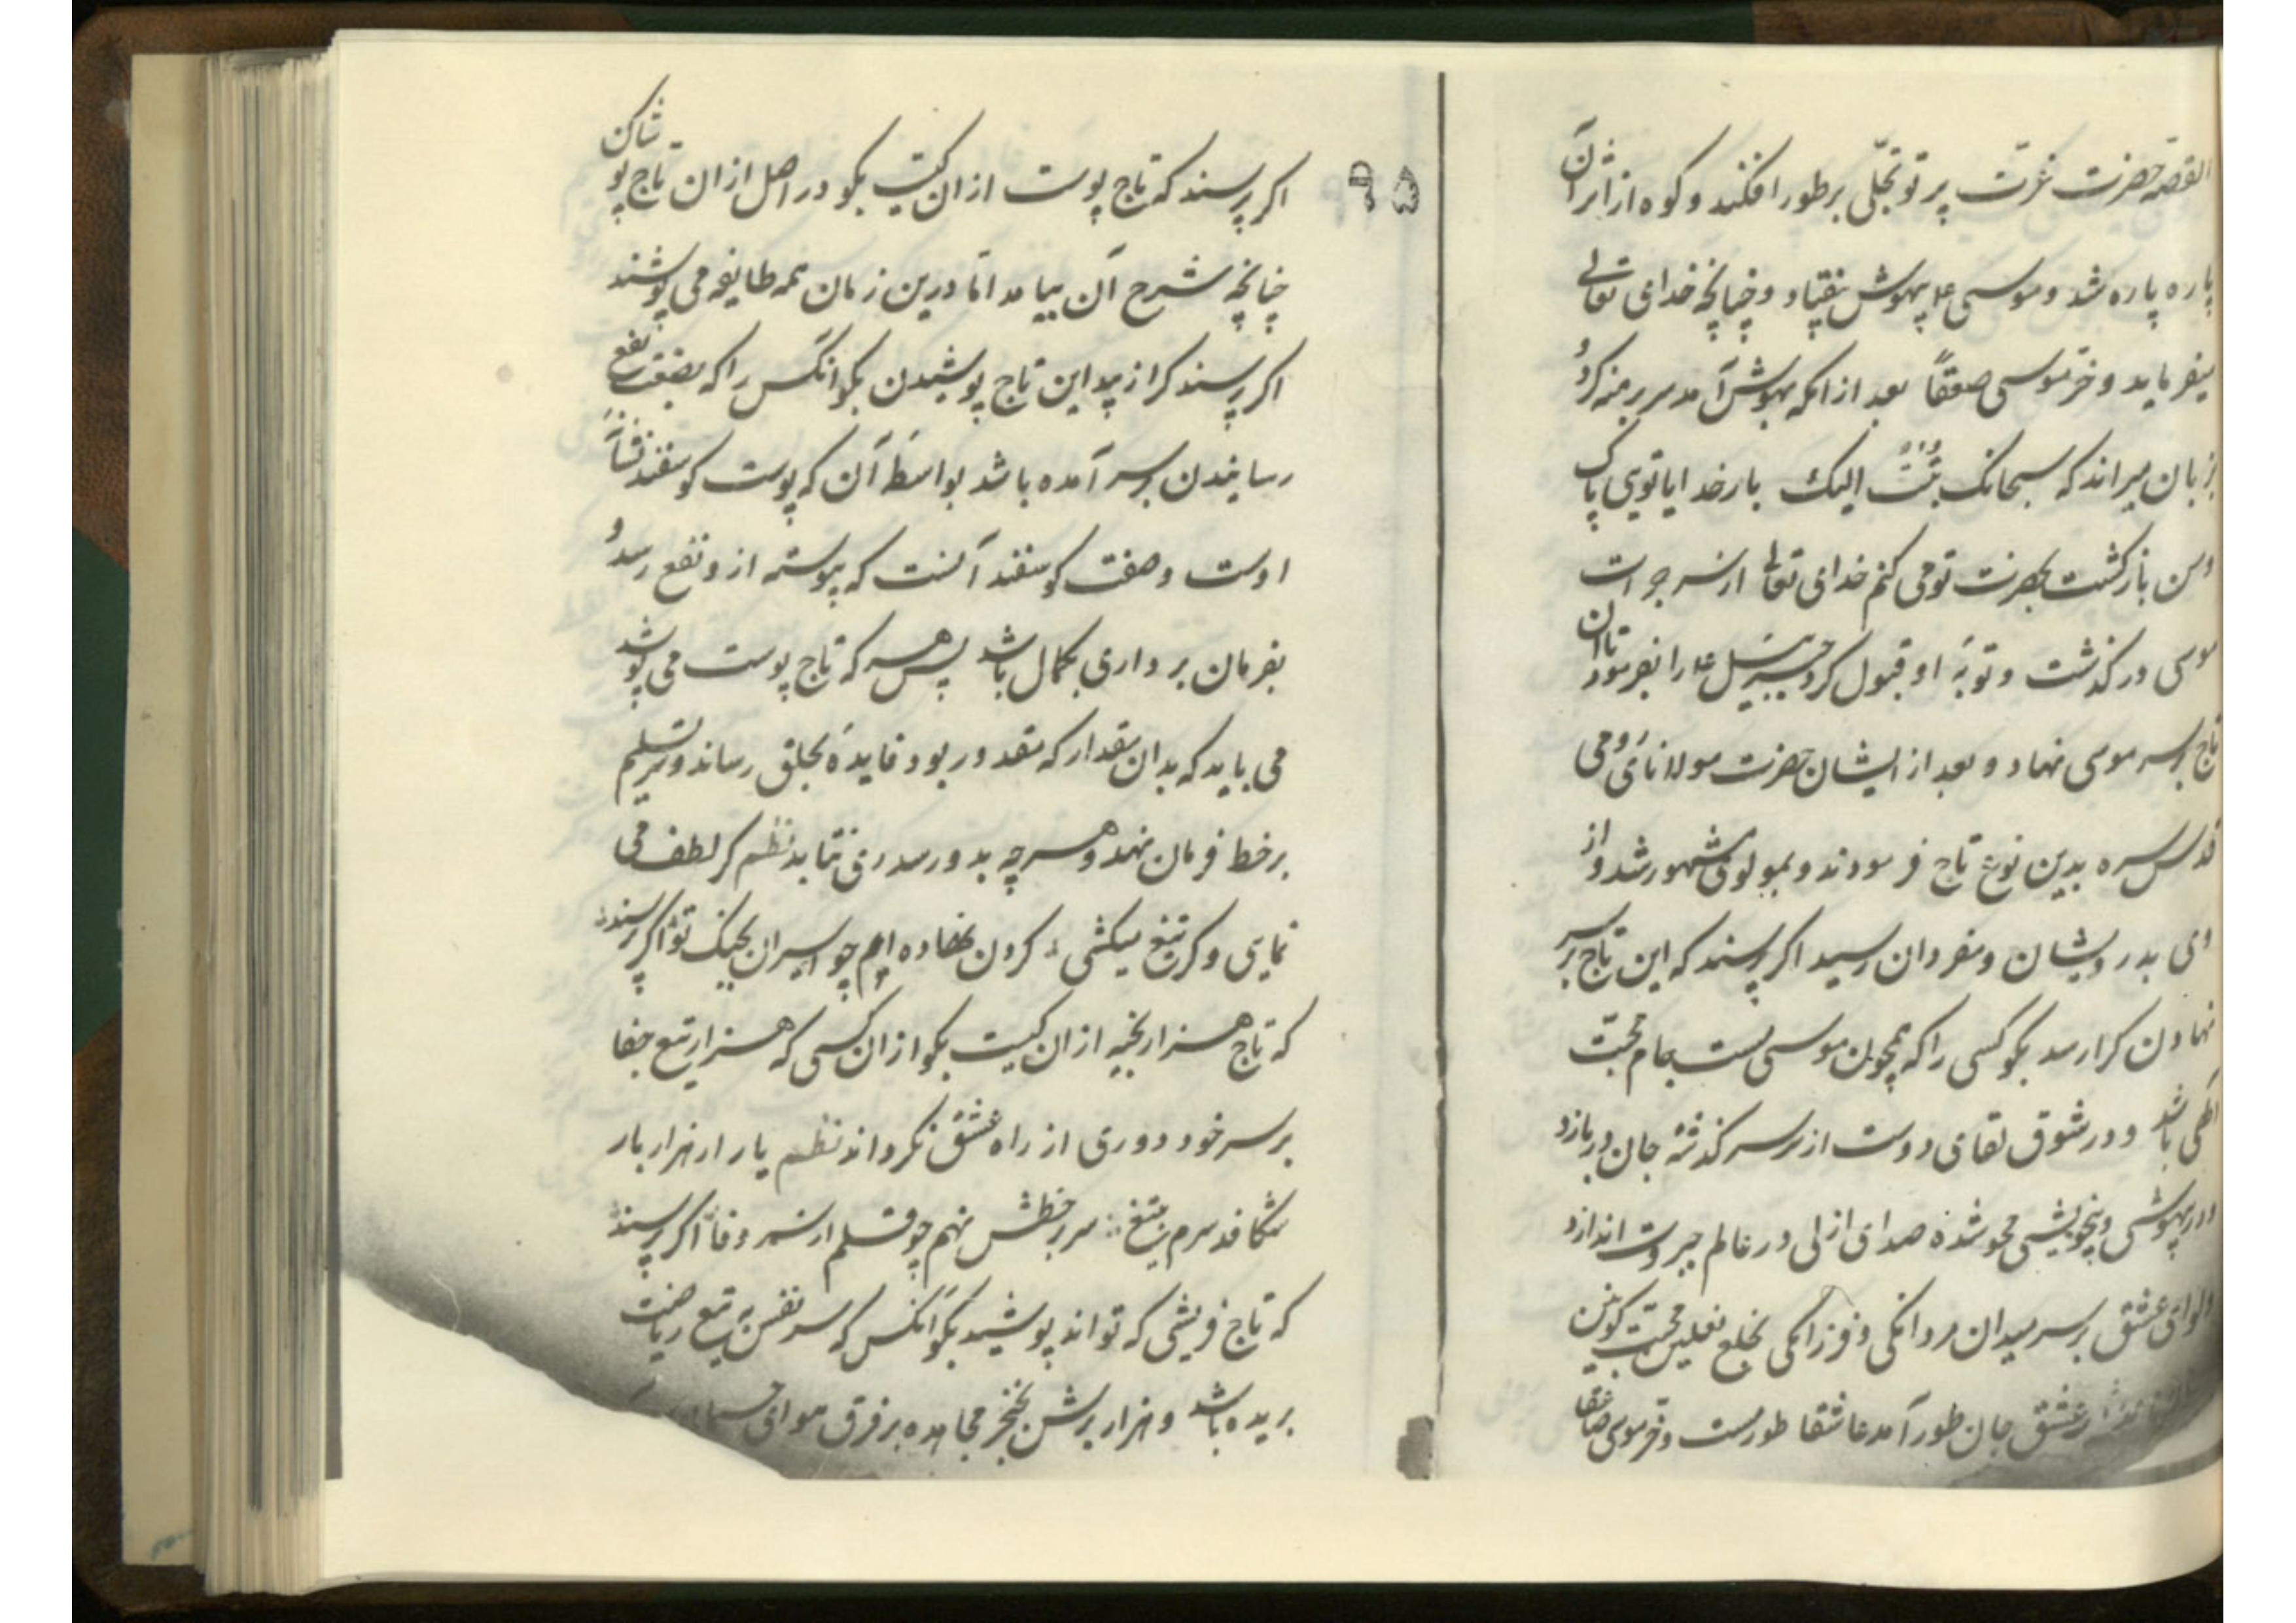 القصه حضرت عزت پرتو تجلّی بر طور افکند و کوه از اثر آن
پاره پاره شد و موسی ع۴ بیهوش بیفتاد و چنانچه خدای تعالی
میفرماید و خرّ موسی صعقاً بعد از انکه بهوش آمد سر برهنه کرد و
بزبان میراند که سبحانک تُبتُ الیک بار خدایا توی پاک
و من بازکشت بحضرت تو می کنم خدای تعالی از سر جرات
موسی درکذشت و توبهٔ او قبول کرد جبرئیل ع۴ را بفرمود تا آن
تاج بر سر موسی نهاد و بعد از ایشان حضرت مولانای رومی
قدس سره بدین نوع تاج فرمودند و بمولوی مشهور شد و از
وی بدرویشان و مفردان رسید اکر پرسند که این تاج بر سر
نهادن کرا رسد بکو کسی را که همچون موسی مست جام محبّت
الهی باشد و در شوق لقای دوست از سر سر کذشته جان دربازد
و در بیهوشی و بیخویشی محو شده صدای ازلی در عالم جبروت اندازد
و لوای عشق بر سر میدان مردانکی و فرزانکی بخلع نعلین محبت کونین
عشق جان طور آمد عاشقا طور مست و خر موسی صاعقا
۹۵
اکر پرسند که تاج پوست از ان کیست بکو در اصل از ان تاج پوشان
چنانچه شرح آن بیامد امّا درین زمان همه طایفه می پوشند
اکر پرسند کرا زیبد این تاج پوشیدن بکو انکس را که بصفت نفع
رسانیدن بر سر آمده باشد بواسطهٔ آن که پوست کوسفند نشانهٔ
اوست و صفت کوسفند آنست که پیوسته ازو نفع رسد و
بفرمان برداری بکمال باشد پس هر که تاج پوست می پوشد
می باید که بدان مقدار که مقدور بود فایدهٔ بخلق رساند و سر تسلیم
بر خط فرمان نهد و هر چه بدو رسد روی نتابد نظم کر لطف می
نمایی و کر تیغ میکشی ∴ کردن نهاده ایم چو اسیران بجنک تو اکر پرسند
که تاج هزار بخیه از ان کیست بکو از ان کسی که هزار تیغ جفا
بر سر خورد و روی از راه عشق نکرداند نظم یار ار هزار بار
شکافد سرم بتیغ ∴ سر بر خطش نهم چو قلم از سر وفا اکر پرسند
که تاج فریشی که تواند پوشید بکو آنکس که سر نفس به تیغ ریاضت
بریده باشد و هزار برش بخنجر مجاهده بر فرق هوای